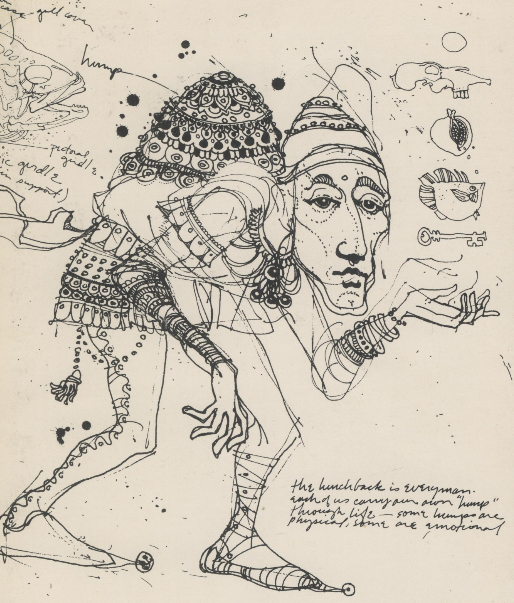 case - gill cover
hump
pectoral
girdle
ic girdle
in support)
the hunchback is everyman.
each of us carry our own "hump"
through life — some humps are
physical, some are emotional